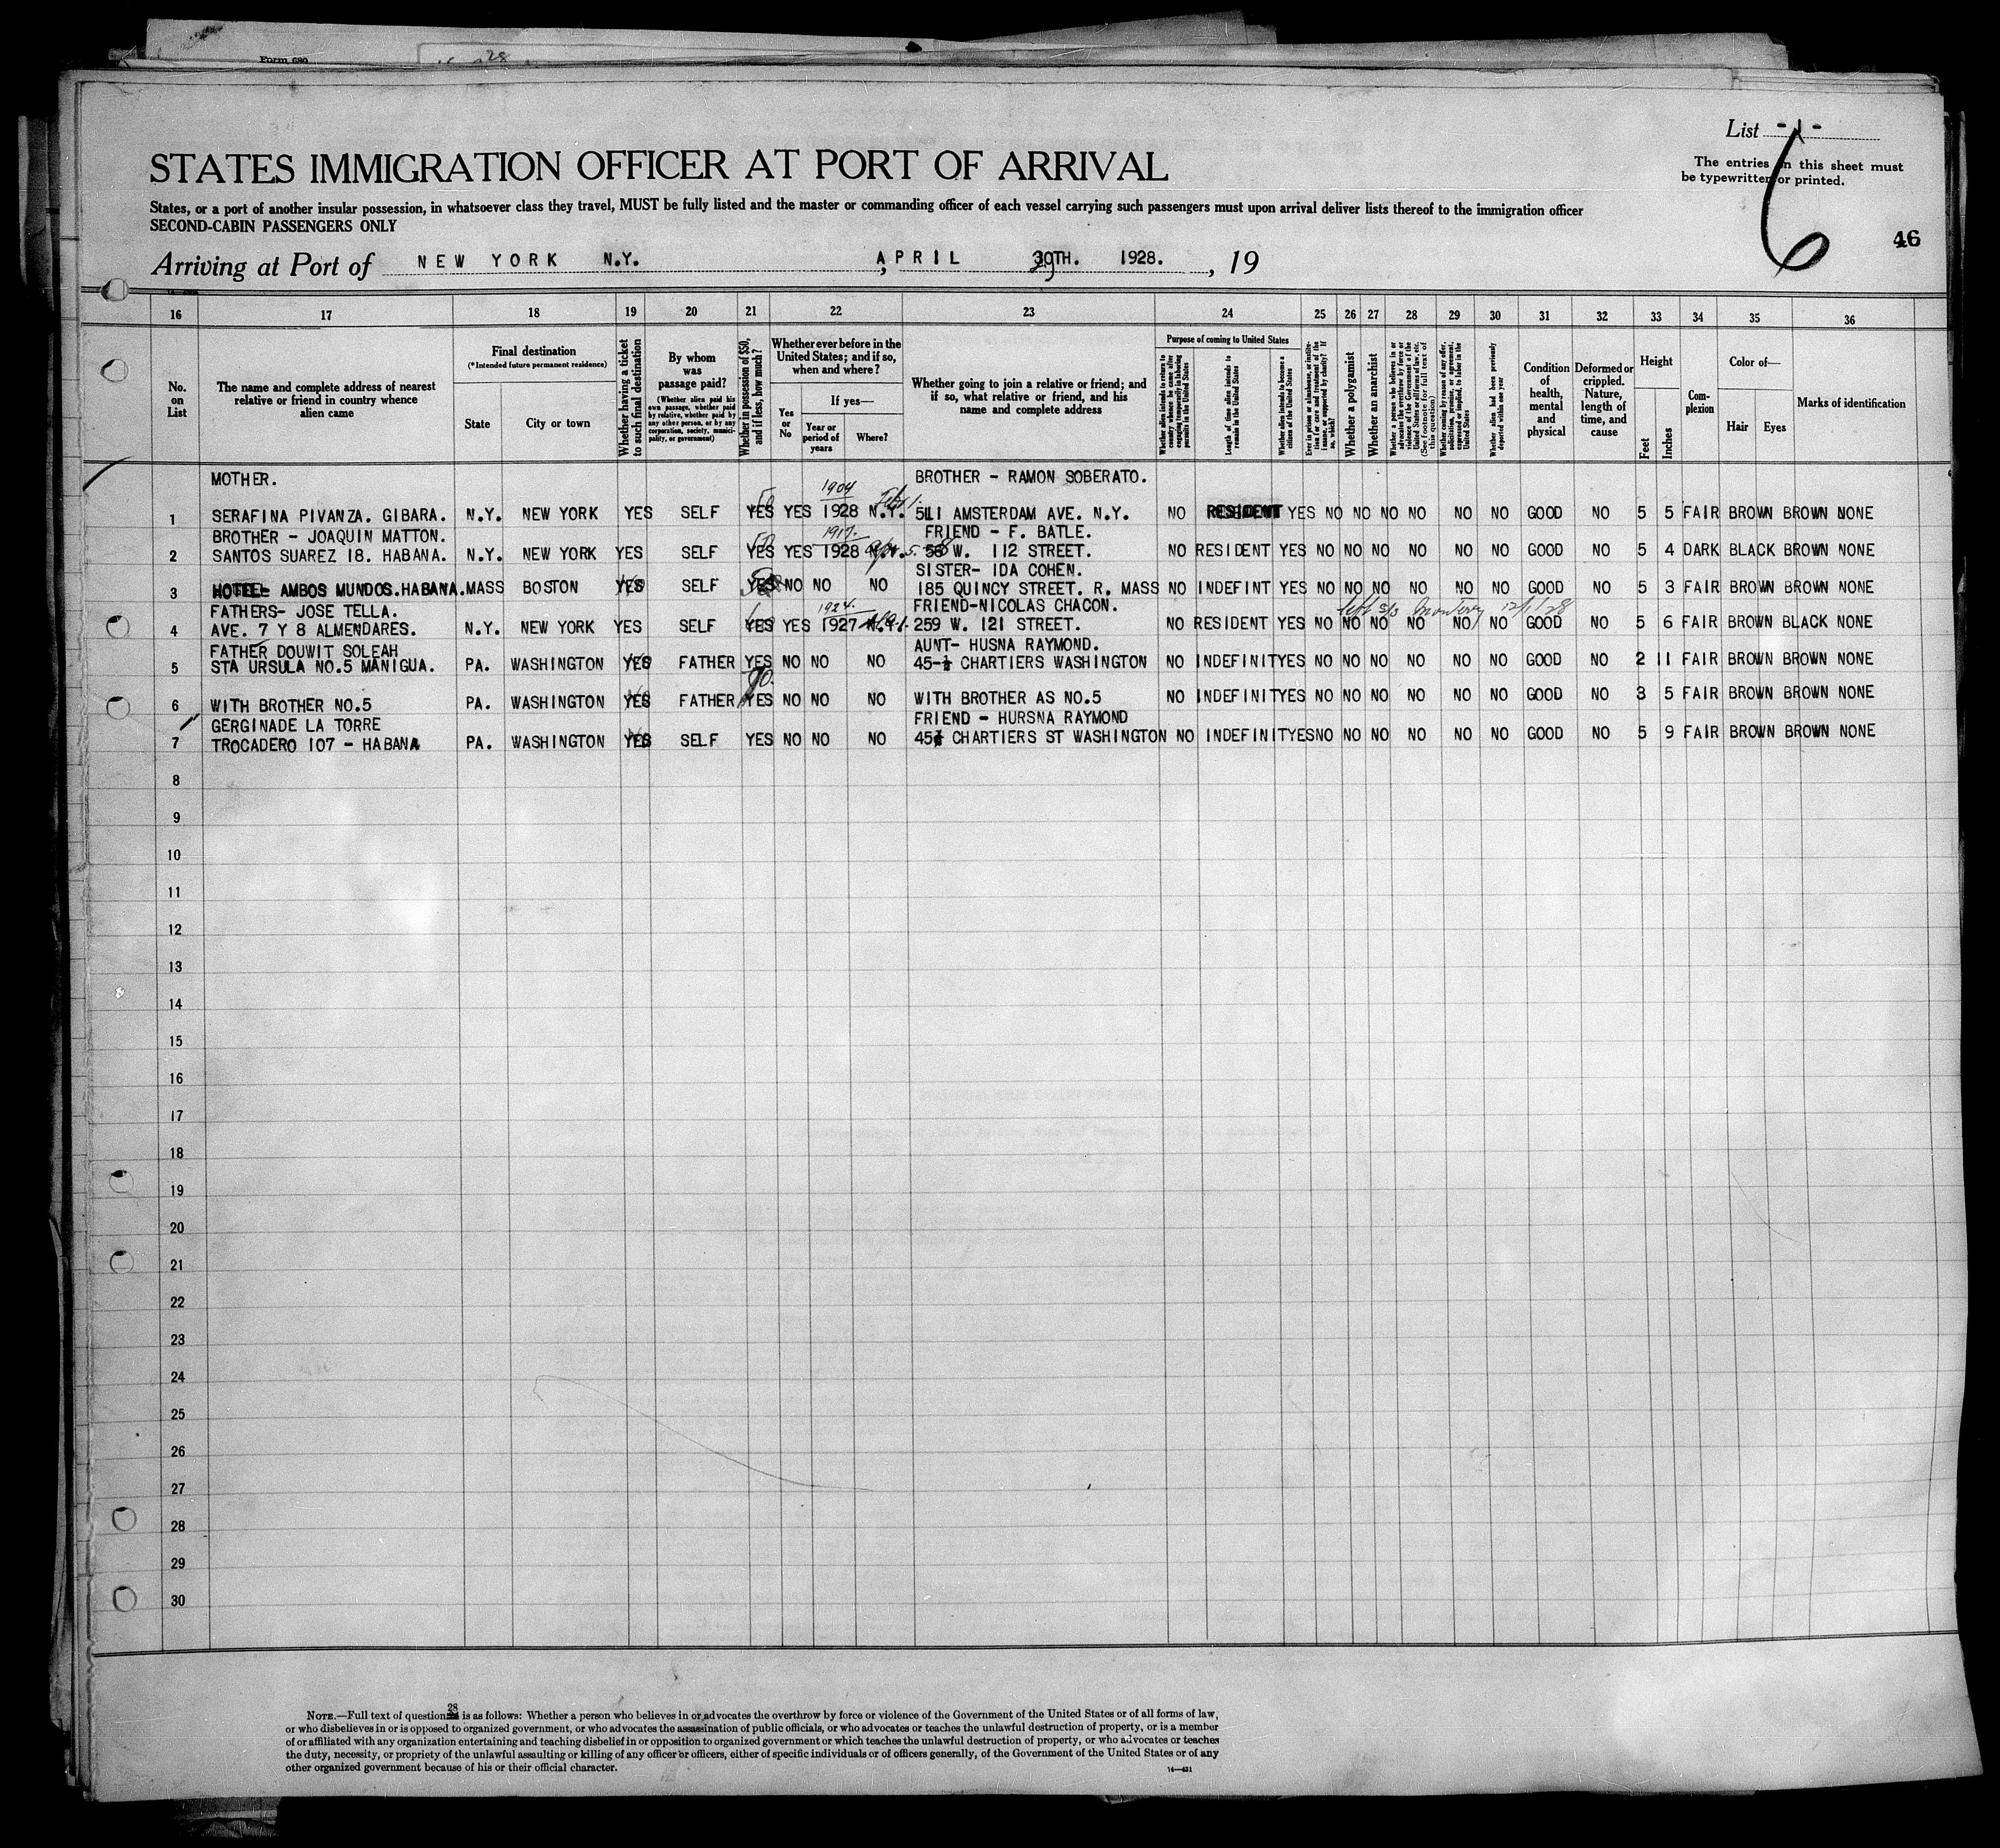 Form 680
28
List - 1 -
6
The entries on this sheet must
be typewritten or printed.
46
STATES IMMIGRATION OFFICER AT PORT OF ARRIVAL
States, or a port of another insular possession, in whatsoever class they travel, MUST be fully listed and the master or commanding officer of each vessel carrying such passengers must upon arrival deliver lists thereof to the immigration officer
SECOND-CABIN PASSENGERS ONLY
Arriving at Port of NEW YORK N.Y. , APRIL TH. 1928. , 19
16 17 18 19 20 21 22 23 24 25 26 27 28 29 30 31 32 33 34 35 36
No. on List
The name and complete address of nearest relative or friend in country whence alien came
Final destination
(*Intended future permanent residence)
State
City or town
Whether having a ticket to such final destination
By whom was passage paid?
(Whether alien paid his own passage, whether paid by relative, whether paid by any other person, or by any corporation, society, municipality, or government)
Whether in possession of $50, and if less, how much?
Whether ever before in the United States; and if so, when and where?
Yes or No
If yes—
Year or period of years
Where?
Whether going to join a relative or friend; and if so, what relative or friend, and his name and complete address
Purpose of coming to United States
Whether alien intends to return to country whence he came after engaging temporarily in laboring pursuits in the United States
Length of time alien intends to remain in the United States
Whether alien intends to become a citizen of the United States
Whether a polygamist
Whether an anarchist
Whether alien had been previously deported within one year
Condition of health, mental and physical
Deformed or crippled. Nature, length of time, and cause
Height
Feet
Inches
Complexion
Color of—
Hair
Eyes
Marks of identification
MOTHER. 1904 BROTHER - RAMON SOBERATO.
1 SERAFINA PIVANZA. GIBARA. N.Y. NEW YORK YES SELF YES YES 1928 N.Y. 511 AMSTERDAM AVE. N.Y. NO RESIDENT YES NO NO NO NO NO NO GOOD NO 5 5 FAIR BROWN BROWN NONE
BROTHER - JOAQUIN MATTON. 1917. FRIEND - F. BATLE.
2 SANTOS SUAREZ 18. HABANA. N.Y. NEW YORK YES SELF YES YES 1928 56 W. 112 STREET. NO RESIDENT YES NO NO NO NO NO NO GOOD NO 5 4 DARK BLACK BROWN NONE
SISTER- IDA COHEN.
3 HOTEL- AMBOS MUNDOS.HABANA. MASS BOSTON YES SELF YES NO NO NO 185 QUINCY STREET. R. MASS NO INDEFINT YES NO NO NO NO NO NO GOOD NO 5 3 FAIR BROWN BROWN NONE
FATHERS- JOSE TELLA. 1924. FRIEND-NICOLAS CHACON. Left S/S Monterey 12/1/28
4 AVE. 7 Y 8 ALMENDARES. N.Y. NEW YORK YES SELF YES YES 1927 N.Y. 259 W. 121 STREET. NO RESIDENT YES NO NO NO NO NO NO GOOD NO 5 6 FAIR BROWN BLACK NONE
FATHER DOUWIT SOLEAH AUNT- HUSNA RAYMOND.
5 STA URSULA NO.5 MANIGUA. PA. WASHINGTON YES FATHER YES NO NO NO 45-½ CHARTIERS WASHINGTON NO INDEFINIT YES NO NO NO NO NO NO GOOD NO 2 11 FAIR BROWN BROWN NONE
6 WITH BROTHER NO.5 PA. WASHINGTON YES FATHER YES NO NO NO WITH BROTHER AS NO.5 NO INDEFINIT YES NO NO NO NO NO NO GOOD NO 3 5 FAIR BROWN BROWN NONE
GERGINADE LA TORRE FRIEND - HURSNA RAYMOND
7 TROCADERO 107 - HABANA PA. WASHINGTON YES SELF YES NO NO NO 45½ CHARTIERS ST WASHINGTON NO INDEFINIT YES NO NO NO NO NO NO GOOD NO 5 9 FAIR BROWN BROWN NONE
8
9
10
11
12
13
14
15
16
17
18
19
20
21
22
23
24
25
26
27
28
29
30
NOTE.—Full text of question 28 is as follows: Whether a person who believes in or advocates the overthrow by force or violence of the Government of the United States or of all forms of law,
or who disbelieves in or is opposed to organized government, or who advocates the assassination of public officials, or who advocates or teaches the unlawful destruction of property, or is a member
of or affiliated with any organization entertaining and teaching disbelief in or opposition to organized government or which teaches the unlawful destruction of property, or who advocates or teaches
the duty, necessity, or propriety of the unlawful assaulting or killing of any officer or officers, either of specific individuals or of officers generally, of the Government of the United States or of any
other organized government because of his or their official character.
14—431